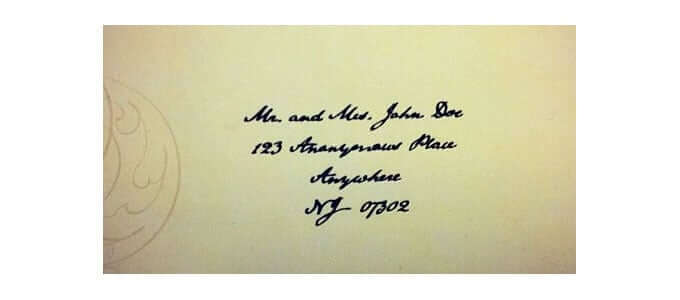 Mr. and Mrs. John Doe
123 Anonymous Place
Anywhere
NJ 07302